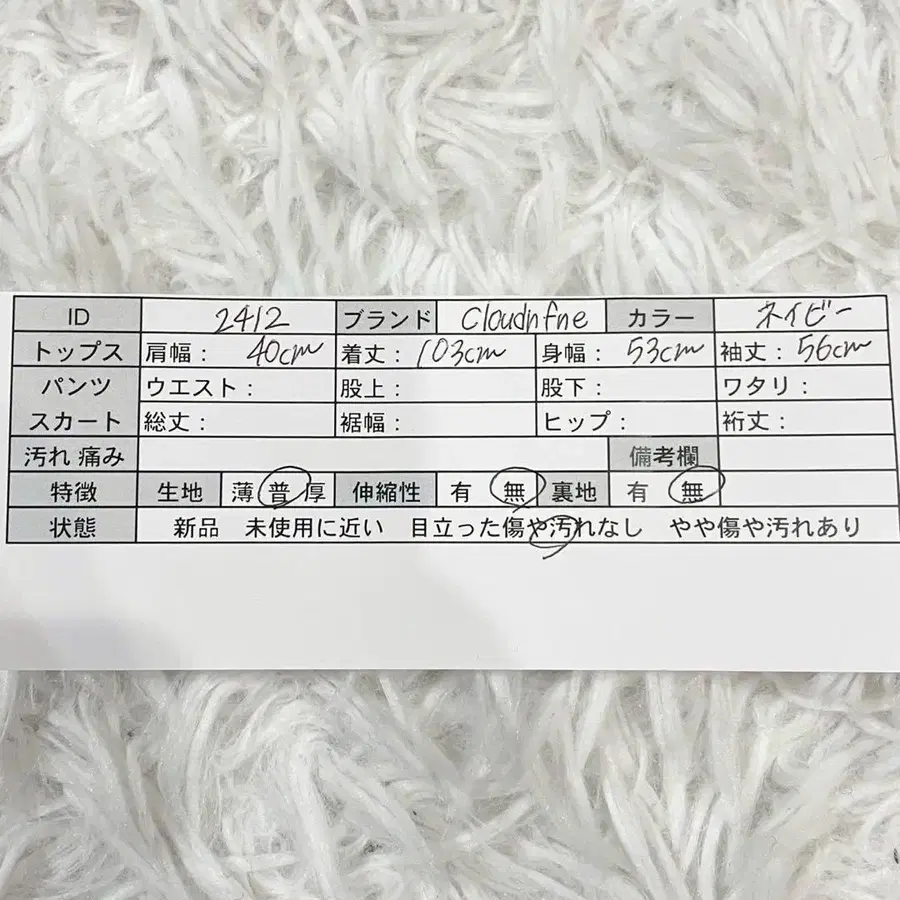 ID 2412 ブランド Cloudnfne カラー ネイビー
トップス 肩幅： 40cm 着丈：103cm 身幅： 53cm 袖丈：56cm
パンツ ウエスト： 股上： 股下： ワタリ：
スカート 総丈： 裾幅： ヒップ： 裄丈：
汚れ 痛み 備考欄
特徴 生地 薄 普 厚 伸縮性 有 無 裏地 有 無
状態 新品 未使用に近い 目立った傷や汚れなし やや傷や汚れあり